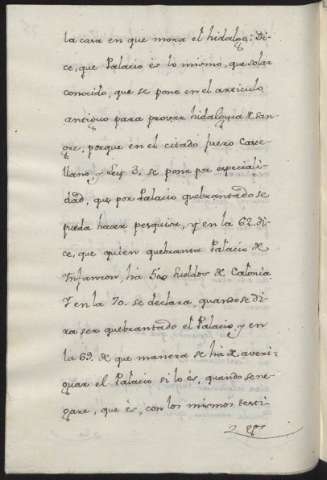 la casa en que mora el hidalgo: Di-
ce, que Palacio és lo mismo, que solar
conocido, que se pone en el articulo
antiguo para provar hidalguia de san-
gre, porque en el citado fuero Caste-
llano y Ley 3. se pone pr especiali-
dad, que por Palacio quebrantado se
pueda hacer pesquisa, y en la 62. di-
ce, que quien quebranta Palacio de
Infanzon, há 500 sueldos de Calonia
Y en la 70. se declara, quando se di-
ra ser quebrantado el Palacio, y en
la 69. de que manera se há de averi-
guar el Palacio si lo és, quando se ne-
gare, que és, con los mismos testi-